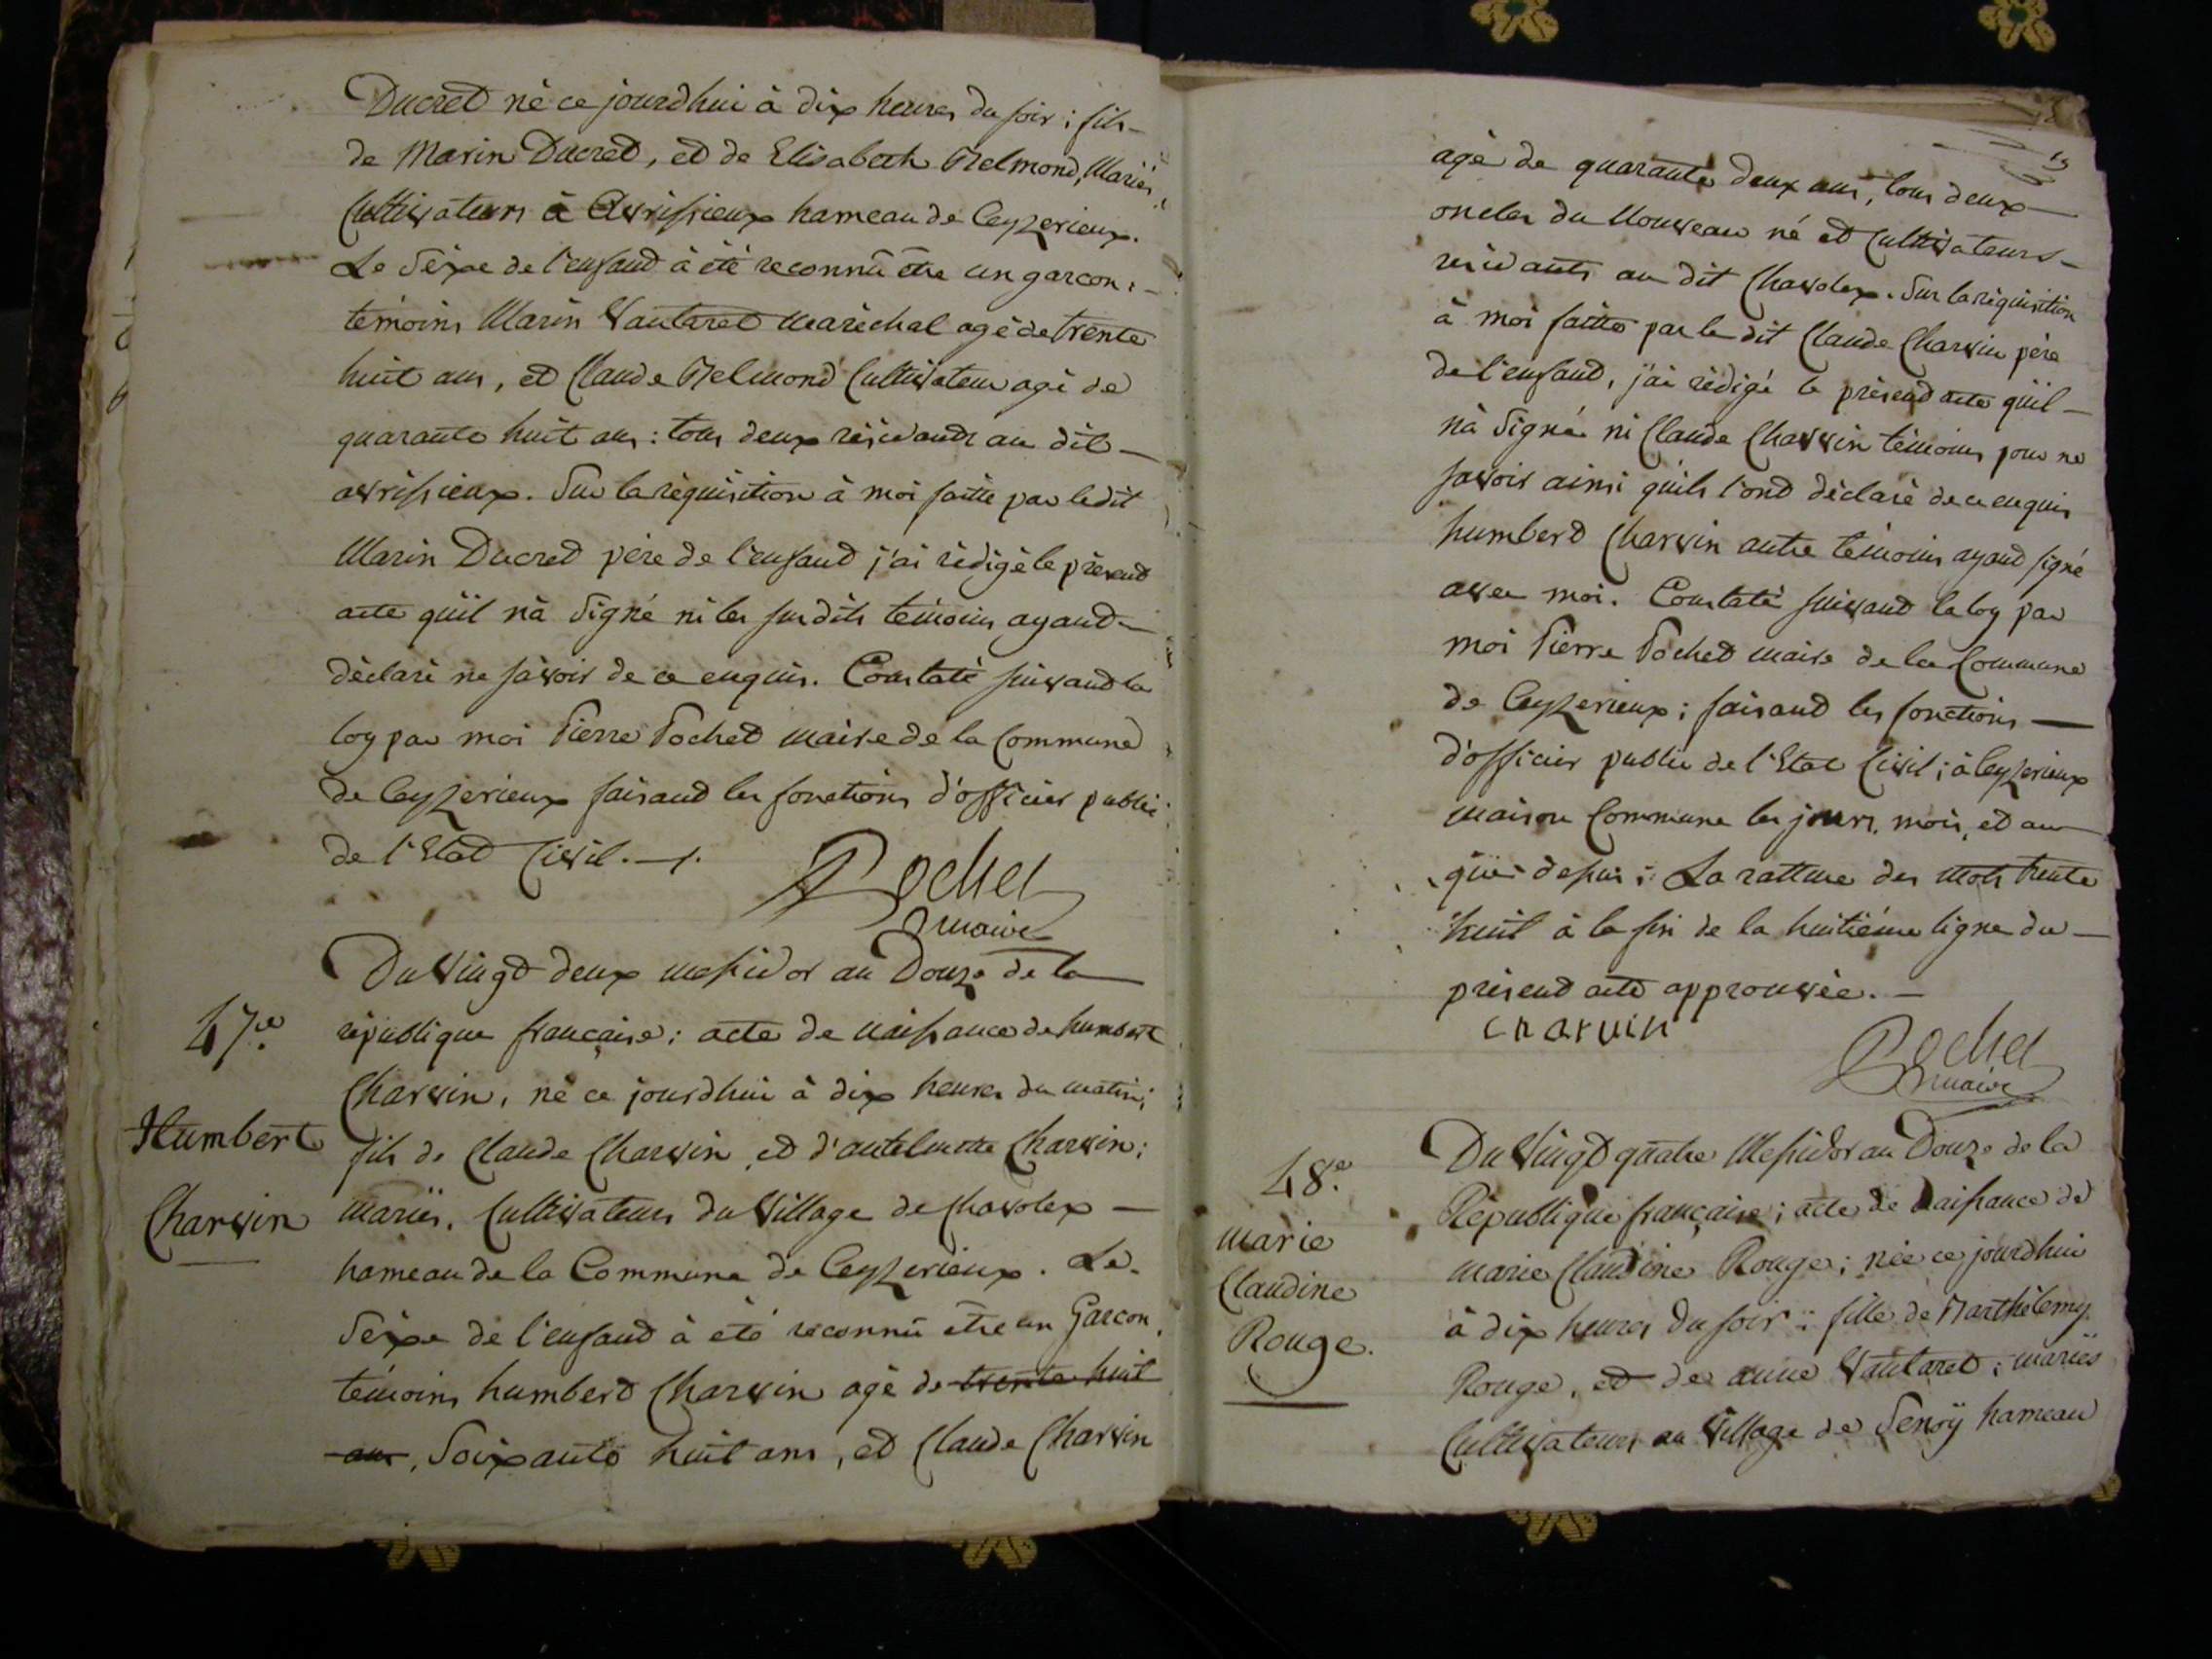 Ducret né ce jourdhui à dix heures du soir ; fils
de Marin Ducret, et de Elisabeth Belmond, Mariés
Cultivateurs à Avrissieux hameau de Ceyzerieux.
Le Sèxe de l'enfand à été reconnû être un garcon :
témoins Marin Vautaret maréchal agé de trente
huit ans, et Claude Belmond Cultivateur agé de
quarante huit ans : tous deux résidants au dit
avrissieux. Sur la réquisition à moi faitte par ledit
Marin Ducred père de l'enfand j'ai rédigé le présend
acte quil nà Signé ni les susdits témoins ayand
déclaré ne savoir de ce enquis. Constaté suivand la
loy par moi Pierre Pochet maire de la Commune
de Ceyzerieux faisand les fonctions d'officier public
de l'Etat Civil. —/.
Pochet
maire
47e.
Humbert
Charvin
Du Vingt deux messidor an Douze de la
république française : acte de naissance de humbert
Charvin, né ce jourdhui à dix heures du matin ;
fils de Claude Charvin, et d'antelmette Charvin ;
mariés, Cultivateurs du Village de Chavolex —
hameau de la Commune de Ceyzerieux. Le
Sèxe de l'enfand à été reconnû être un Garcon,
témoins humbert Charvin agé de trente huit
ans, Soixante huit ans, et Claude Charvin
agé de quarante deux ans, tous deux
oncles du Nouveau né et Cultivateurs
résidants au dit Chavolex. Sur la réquisition
à moi faitte par le dit Claude Charvin père
de l'enfand, j'ai rédigé le présend acte quil —
nà Signé ni Claude Charvin témoins pour ne
savoir ainsi quils l'ond déclaré de ce enquis
humbert Charvin autre témoins ayand signé
avec moi. Constaté suivand la loy par
moi Pierre Pochet maire de la Commune
de Ceyzerieux ; faisand les fonctions —
d'officier public de l'Etat Civil ; à Ceyzerieux
maison Commune les jours, mois, et an
que dessus ; La rature des mots trente
huit à la fin de la huitiéme ligne du —
présend acte approuvée. —
charvin
Pochet
maire
48e.
marie
Claudine
Rouge.
Du Vingt quatre Messidor an Douze de la
République française ; acte de Naissance de
marie Claudine Rouge ; née ce jourdhui
à dix heures du soir : fille de Barthélemy
Rouge, et de anne Vautaret ; mariés
Cultivateurs au Village de Senoÿ hameau